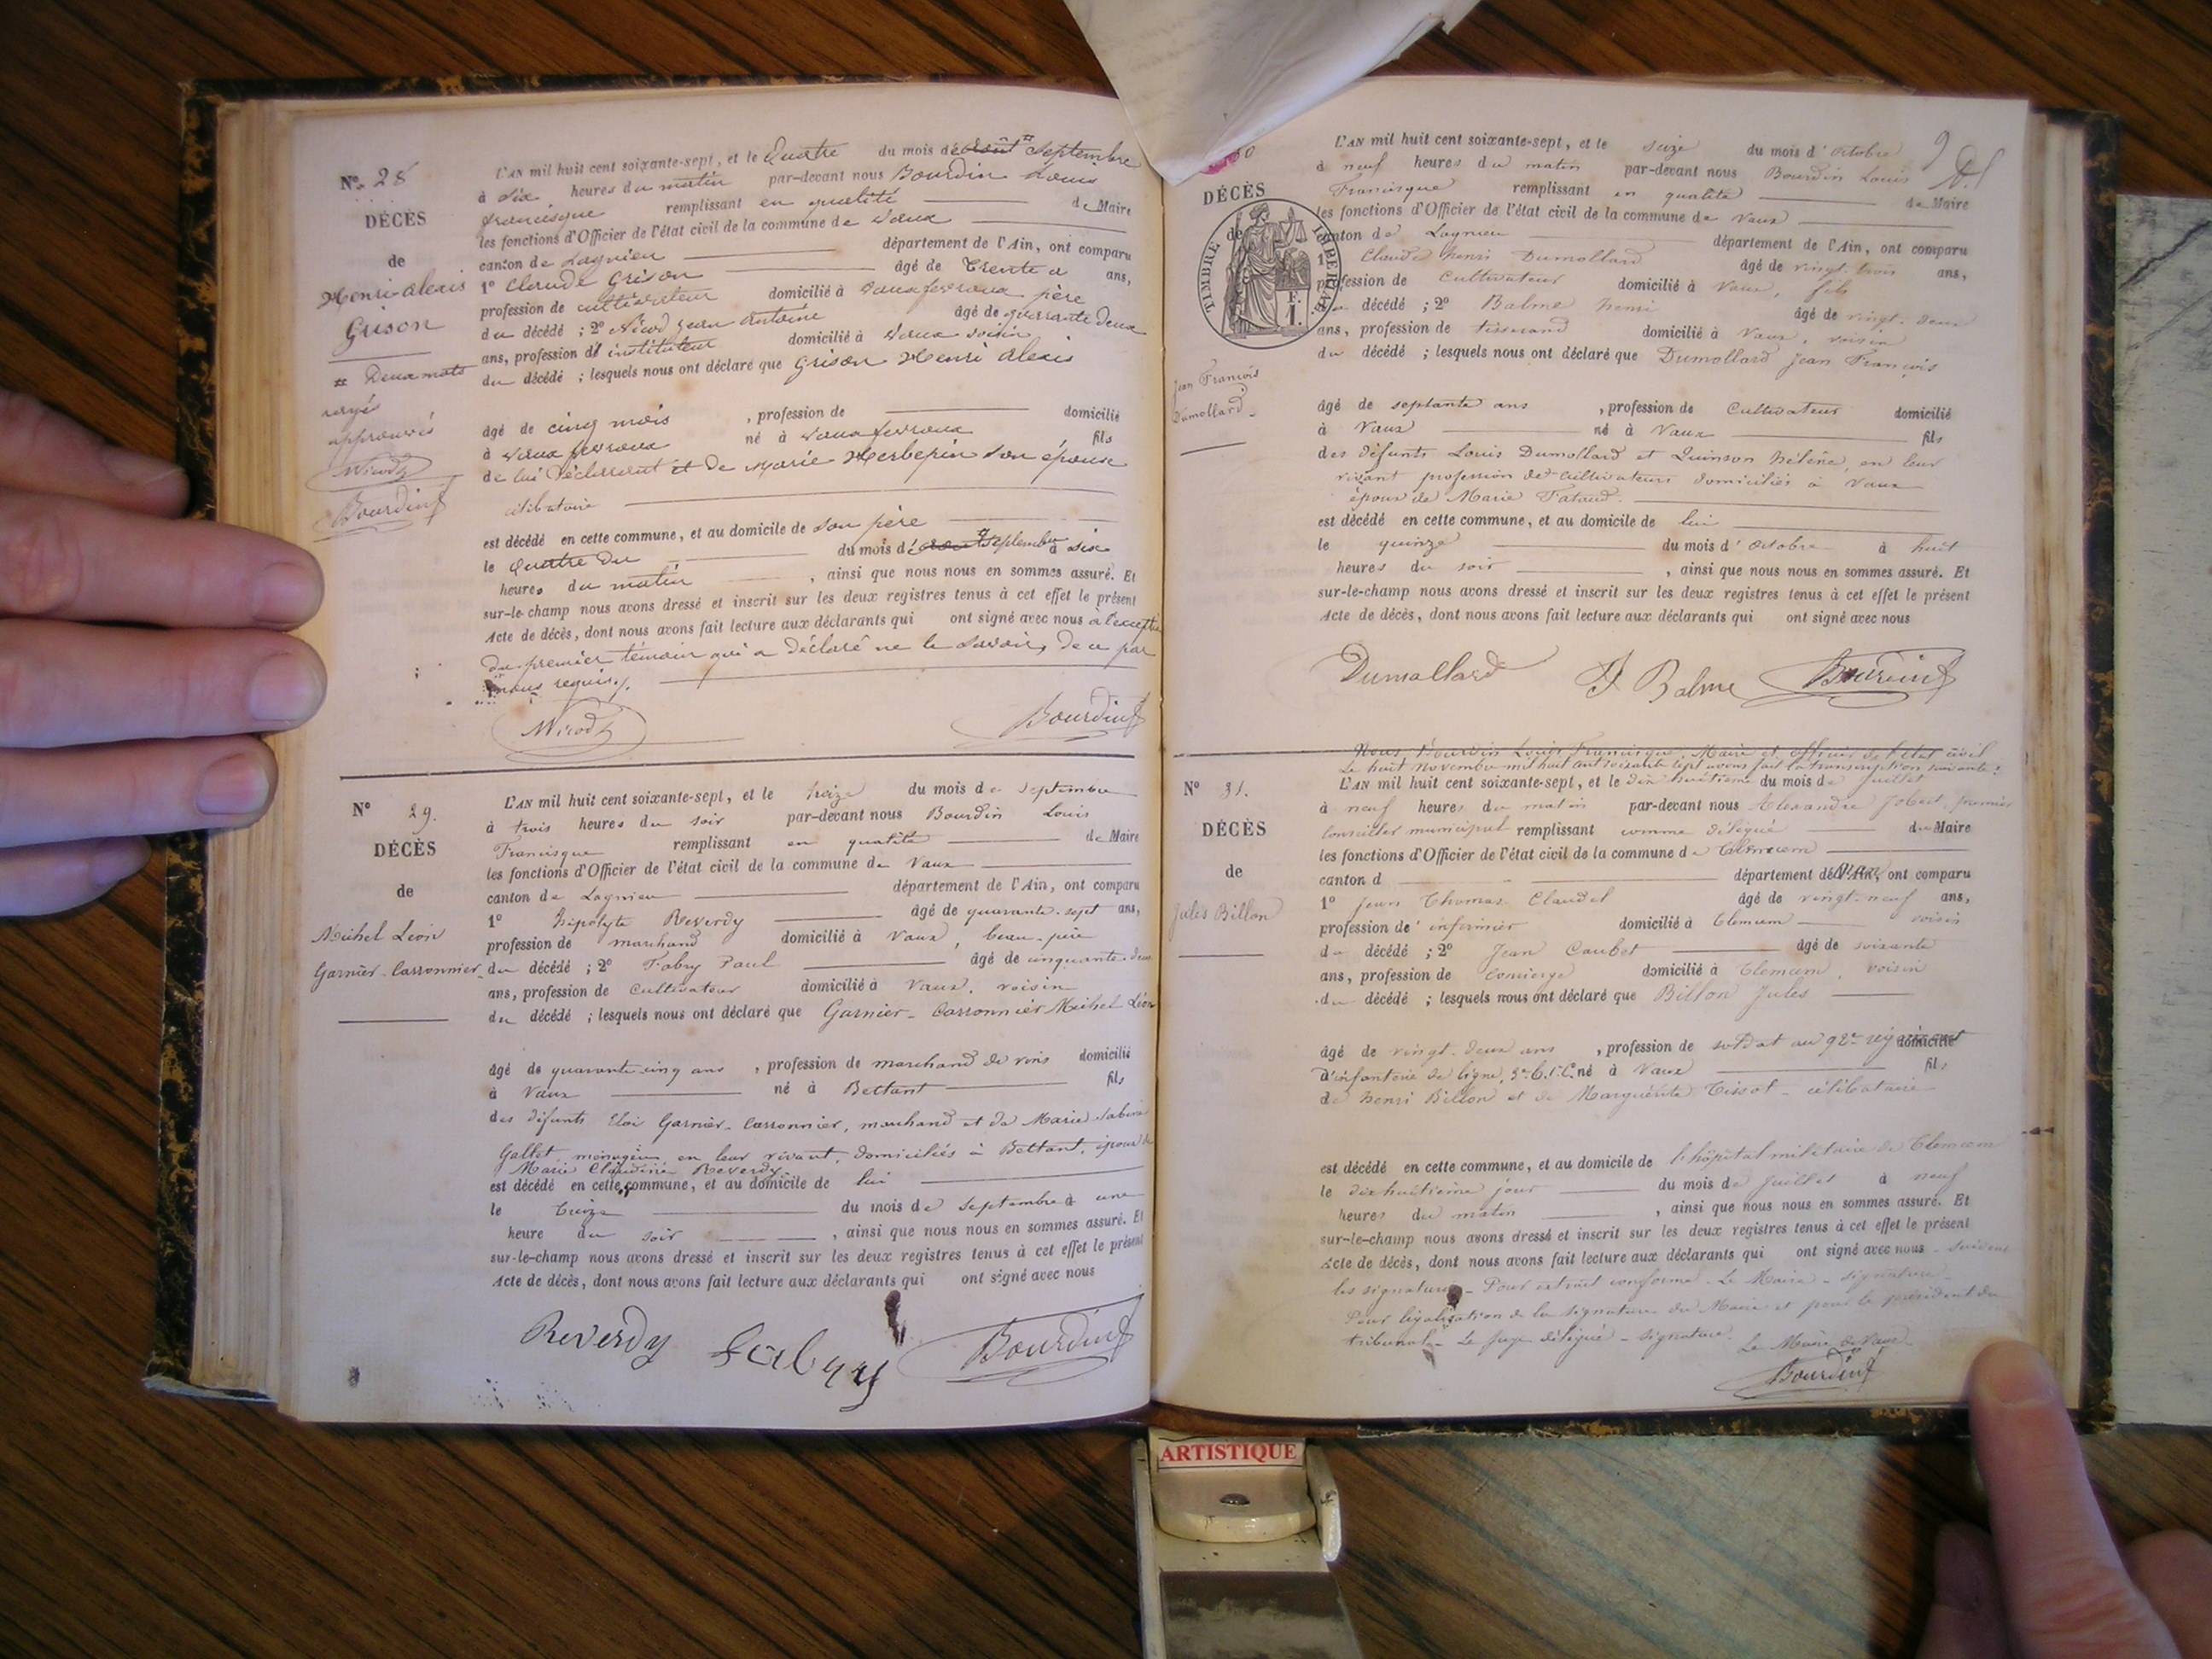 N° 28
DÉCÈS
de
Henri alexis
Grison
# Deux mots
rayés
approuvés
Nicod
Bourdin
L'AN mil huit cent soixante-sept, et le Quatre du mois de août # Septembre
à dix heures du matin par-devant nous Bourdin Louis
francisque remplissant en qualité de Maire
les fonctions d'Officier de l'état civil de la commune de Vaux
canton de Lagnieu département de l'Ain, ont comparu
1° Claude Grison âgé de Trente a ans,
profession de cultivateur domicilié à Vauxfevroux père
du décédé ; 2° Nicod Jean Antoine âgé de quarante deux
ans, profession d' instituteur domicilié à Vaux voisin
du décédé ; lesquels nous ont déclaré que Grison Henri Alexis
âgé de cinq mois , profession de domicilié
à Vaux fevroux né à Vaux fevroux fils
de lui Déclarant et de Marie Herbepin son épouse
célibataire
est décédé en cette commune, et au domicile de son père
le Quatre du du mois de août # Septembre à six
heures du matin , ainsi que nous nous en sommes assuré. Et
sur-le-champ nous avons dressé et inscrit sur les deux registres tenus à cet effet le présent
Acte de décès, dont nous avons fait lecture aux déclarants qui ont signé avec nous à l'exception
du premier témoin qui a déclaré ne le savoir, de ce par
nous requis ./.
Nicod Bourdin
N° 29.
DÉCÈS
de
Michel Léon
Garnier-Carronnier
L'AN mil huit cent soixante-sept, et le treize du mois de Septembre
à trois heures du soir par-devant nous Bourdin Louis
Francisque remplissant en qualité de Maire
les fonctions d'Officier de l'état civil de la commune de Vaux
canton de Lagnieu département de l'Ain, ont comparu
1° hipolyte Reverdy âgé de quarante-sept ans,
profession de marchand domicilié à Vaux, beau-père
du décédé ; 2° Fabry Paul âgé de cinquante-deux
ans, profession de Cultivateur domicilié à Vaux, voisin
du décédé ; lesquels nous ont déclaré que Garnier-Carronnier Michel Léon
âgé de quarante-cinq ans , profession de marchand de vins domicilié
à Vaux né à Bettant fils
des défunts Eloi Garnier-Carronnier, marchand et de Marie Sabine
Gallet, ménagère en leur vivant, domiciliés à Bettant, époux de
Marie Claudine Reverdy.
est décédé en cette commune, et au domicile de lui
le Treize du mois de Septembre à une
heure du soir , ainsi que nous nous en sommes assuré. Et
sur-le-champ nous avons dressé et inscrit sur les deux registres tenus à cet effet le présent
Acte de décès, dont nous avons fait lecture aux déclarants qui ont signé avec nous
Reverdy Fabry Bourdin
9
30
DÉCÈS
de
TIMBRE IMPERIAL
F.
1.
Jean François
Dumollard
L'AN mil huit cent soixante-sept, et le seize du mois d'octobre
à neuf heures du matin par-devant nous Bourdin Louis
Francisque remplissant en qualité de Maire
les fonctions d'Officier de l'état civil de la commune de Vaux
canton de Lagnieu département de l'Ain, ont comparu
1° Claude henri Dumollard âgé de vingt-trois ans,
profession de Cultivateur domicilié à Vaux, fils
du décédé ; 2° Balme henri âgé de vingt-deux
ans, profession de tisserand domicilié à Vaux, voisin
du décédé ; lesquels nous ont déclaré que Dumollard Jean François
âgé de septante ans , profession de Cultivateur domicilié
à Vaux né à Vaux fils
des défunts Louis Dumollard et Quinson hélène, en leur
vivant profession de Cultivateurs domiciliés à Vaux
époux de Marie Tataud.
est décédé en cette commune, et au domicile de lui
le quinze du mois d'Octobre à huit
heures du soir , ainsi que nous nous en sommes assuré. Et
sur-le-champ nous avons dressé et inscrit sur les deux registres tenus à cet effet le présent
Acte de décès, dont nous avons fait lecture aux déclarants qui ont signé avec nous
Dumollard H Balme Bourdin
N° 31.
DÉCÈS
de
Jules Billon
Nous, Bourdin Louis Francisque, Maire et officier de l'état civil
Le huit Novembre mil huit cent soixante sept avons fait la transcription suivante :
L'AN mil huit cent soixante-sept, et le dix huitième du mois de Juillet
à neuf heures du matin par-devant nous Alexandre Jobert, premier
Conseiller municipal remplissant comme délégué du Maire
les fonctions d'Officier de l'état civil de la commune de Tlemcem
canton d département de l'Ain, ont comparu
1° Jean Thomas Claudel âgé de vingt-neuf ans,
profession d' infirmier domicilié à Tlemcem voisin
du décédé ; 2° Jean Caubet âgé de soixante
ans, profession de Concierge domicilié à Tlemcem, voisin
du décédé ; lesquels nous ont déclaré que Billon Jules
âgé de vingt-deux ans , profession de soldat au 92e régiment domicilié
d'infanterie de ligne, né à Vaux fils
de henri Billon et de Marguérite Tissot - célibataire
est décédé en cette commune, et au domicile de l'hôpital militaire de Tlemcem
le dix huitième jour du mois de Juillet à neuf
heures du matin , ainsi que nous nous en sommes assuré. Et
sur-le-champ nous avons dressé et inscrit sur les deux registres tenus à cet effet le présent
Acte de décès, dont nous avons fait lecture aux déclarants qui ont signé avec nous - suivent
les signatures - Pour extrait conforme. Le Maire - signature -
Pour légalisation de la signature du Maire et pour le président du
tribunal - Le juge délégué - signature. Le Maire de Vaux
Bourdin
ARTISTIQUE